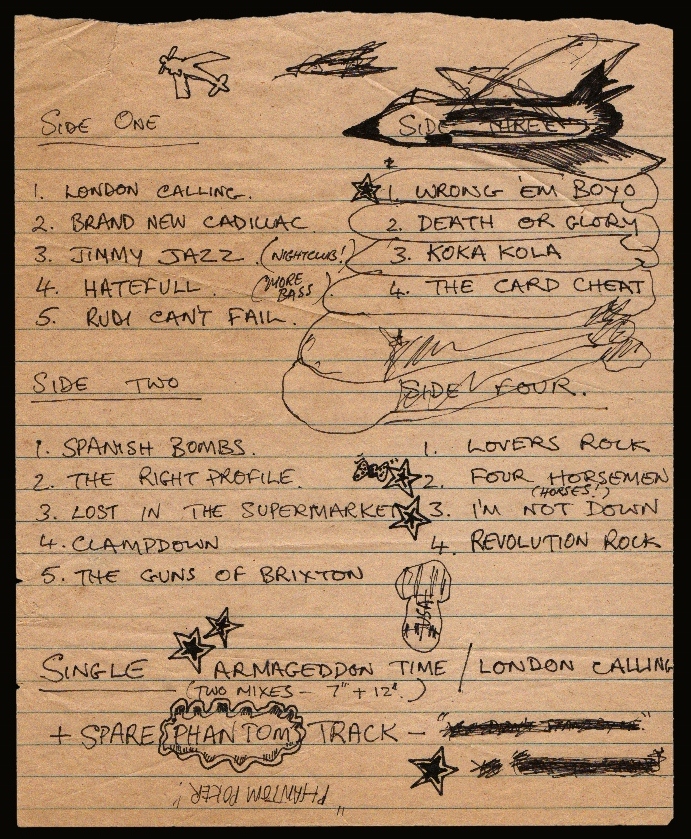 SIDE ONE
1. LONDON CALLING.
2. BRAND NEW CADILLAC
3. JIMMY JAZZ (NIGHTCLUB!)
4. HATEFULL. (MORE BASS)
5. RUDI CAN'T FAIL.
SIDE TWO
1. SPANISH BOMBS.
2. THE RIGHT PROFILE.
3. LOST IN THE SUPERMARKET
4. CLAMPDOWN
5. THE GUNS OF BRIXTON
SIDE THREE
1. WRONG 'EM BOYO
2. DEATH OR GLORY
3. KOKA KOLA
4. THE CARD CHEAT
SIDE FOUR.
1. LOVERS ROCK
2. FOUR HORSEMEN
(HORSES!)
3. I'M NOT DOWN
4. REVOLUTION ROCK
SINGLE ARMAGEDDON TIME / LONDON CALLING
(TWO MIXES - 7" + 12".)
+ SPARE PHANTOM TRACK -
"PHANTOM POKER!